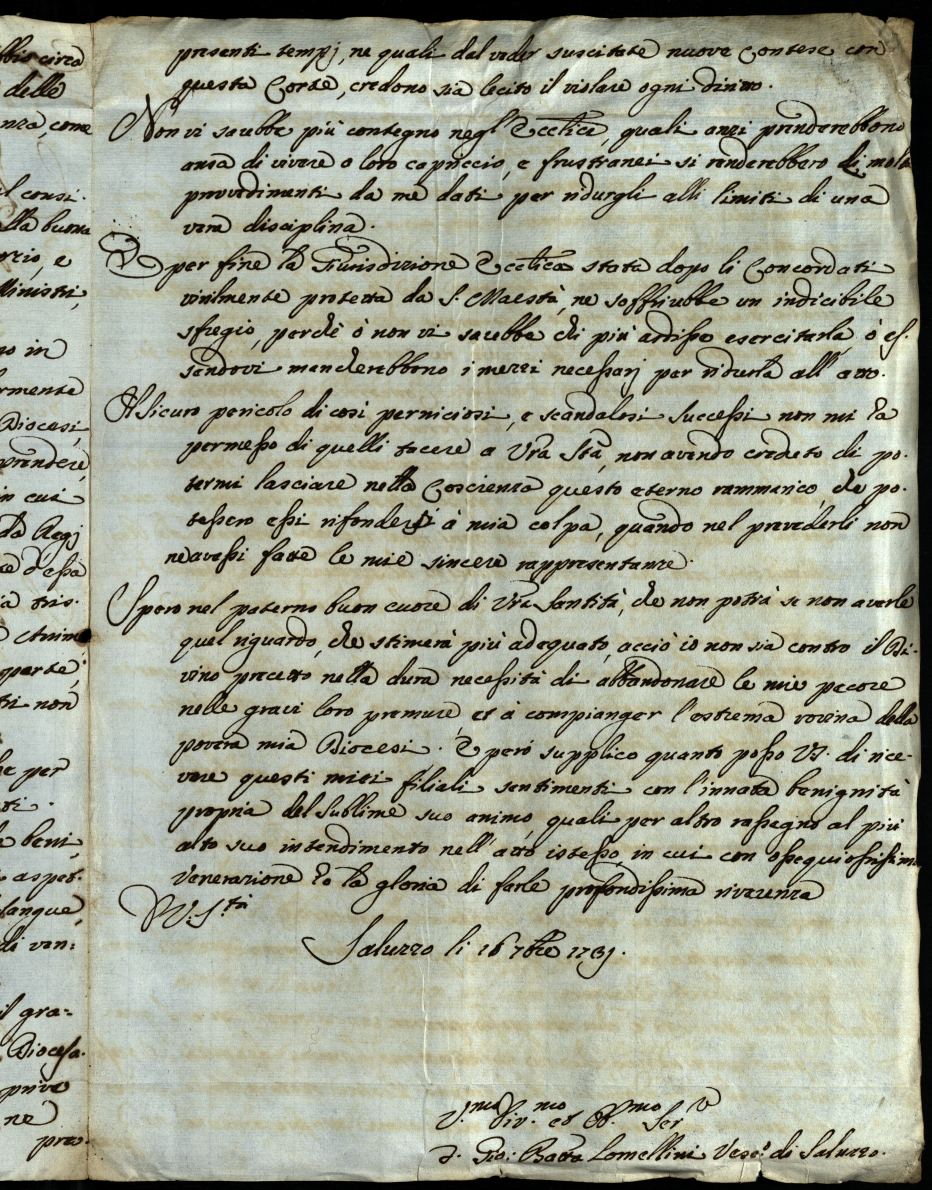 bbio circa
delle
nza, come
il consi-
lla buona
rzio, e
Ministri,
no in
rmente
Diocesi,
prendere,
in cui
da Regj
ce d'essa
ia tris-
e Anime
parte;
tri non
he per
ti.
e beni,
aspet-
sangue,
di ven:
il gra=
Diocesa-
privo
ne
prov-
presenti tempj, ne quali dal veder suscitate nuove contese con
questa Corte, credono sia lecito il violare ogni diritto.
Non vi sarebbe più contegno negl'Ecclici, quali anzi prenderebbono
ansa di vivere a loro capriccio, e frustranei si renderebbero di molti
provedimenti da me dati per ridurgli alli limiti di una
vera disciplina.
E per fine la Giurisdizione Ecclica stata dopo li Concordati
virilmente protetta da S. Maestà, ne soffrirebbe un indicibile
sfregio, perchè ò non vi sarebbe chi più ardisse esercitarla, ò es-
sendovi mancherebbono i mezzi necessarj per ridurla all'atto.
Il sicuro pericolo di così perniciosi, e scandalosi successi non mi ha
permesso di quelli tacere a Vra Stà, non avendo creduto di po-
termi lasciare nella Coscienza questo eterno rammarico, che po-
tessero essi rifondersi à mia colpa, quando nel prevederli non
ne avessi fatte le mie sincere rappresentanze.
Spero nel paterno buon cuore di Vra Santità, che non potrà se non averle
quel riguardo, che stimerà più adequato, acciò io non sia contro il Di-
vino precetto nella dura necessità di abbandonare le mie pecore
nelle gravi loro premure et à compianger l'estrema rovina della
povera mia Diocesi. E però supplico quanto posso VS. di rice-
vere questi miei filiali sentimenti con l'innata benignità
propria del sublime suo animo, quali per altro rassegno al più
alto suo intendimento nell'atto istesso, in cui con ossequiosissima
venerazione hò la gloria di farle profondissima riverenza
D. V. S.tà
Saluzzo li 16 7bre 1731.
V.mo Div.mo et Ob.mo Ser.e
J. Gio: Batta Lomellini Vesc.o di Saluzzo.